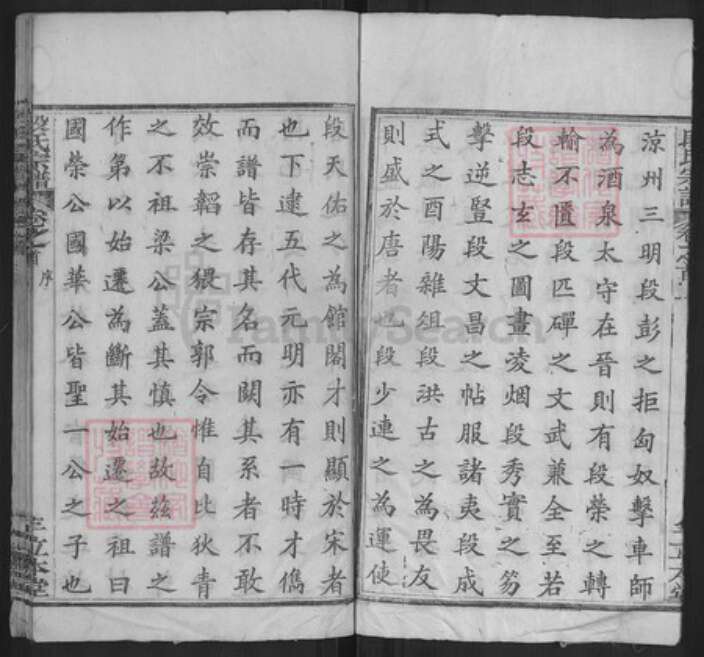 涼州三明段彭之拒匈奴擊車師
為酒泉太守在晉則有段榮之轉
輸不匱段匹磾之文武兼全至若
段志玄之圖畫凌烟段秀實之笏
擊逆豎段文昌之帖服諸夷段成
式之酉陽雜俎段洪古之為畏友
則盛於唐者也段少連之為運使
段天佑之為館閣才則顯於宋者
也下逮五代元明亦有一時才儁
而譜皆存其名而闕其系者不敢
效崇韜之猥宗郭令惟自比狄青
之不祖梁公蓋其慎也故玆譜之
作第以始遷為斷其始遷之祖曰
國榮公國華公皆聖一公之子也
段氏宗譜 卷之首 序
立本堂
FamilySearch